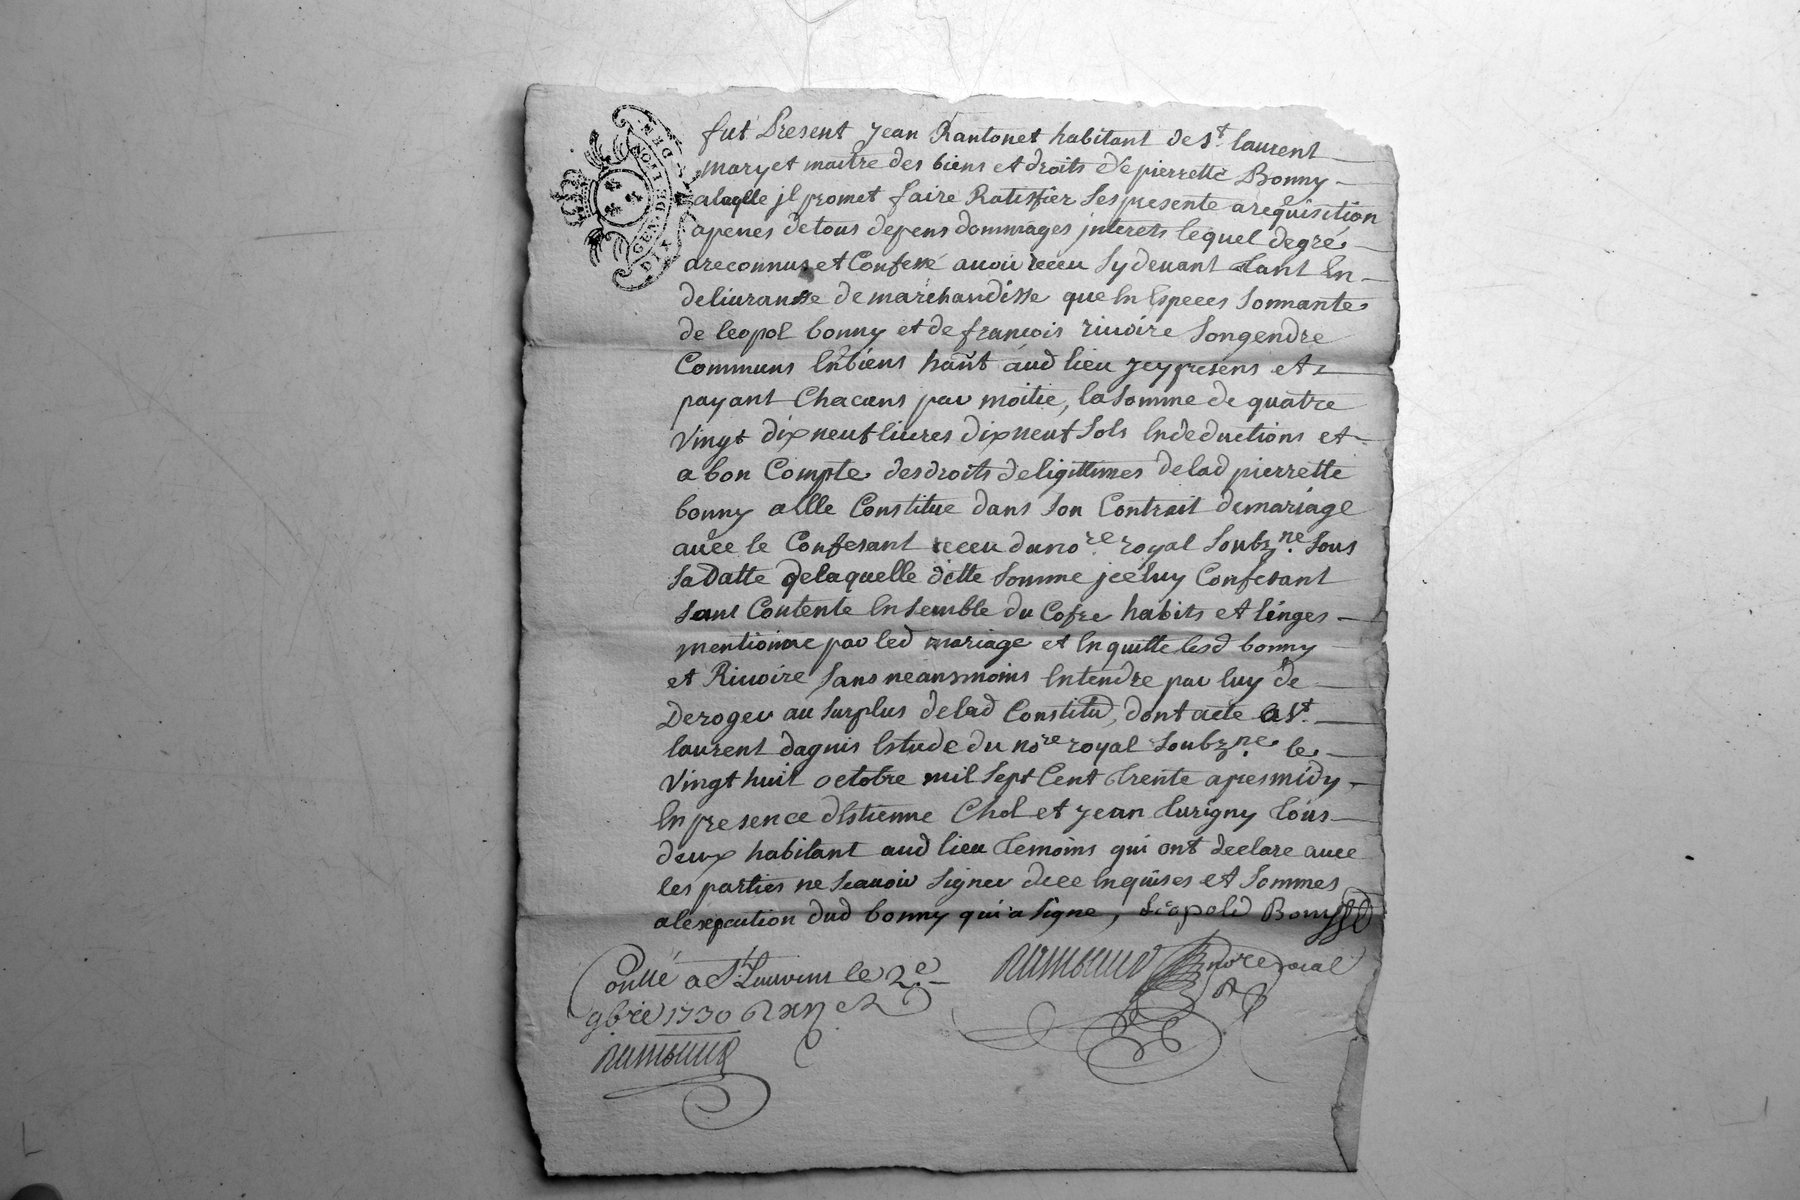 GEN. DE LION
DIX DEN.
fut Present Jean Rantonet habitant de St. laurent
mary et maitre des biens et droits de pierrette Bonny
alaqlle jl promet faire Ratiffier Ses presente a requisition
apenes de tous depens dommages jnterets lequel de gré
a reconnus et Confessé auoir receu Sy deuant tant En
deliuransse de marchandisse que En Especes Sonnante
de leopol bonny et de francois riuoire Songendre
Communs En biens hañt aud lieu Jcy presens et
payant Chacuns par moitie, la Somme de quatre
Vingt dix neuf liures dix neuf Sols En deductions et
a bon Compte des droits de ligittimes de lad pierrette
bonny a Elle Constitue dans Son Contrait de mariage
auec le Confesant receu du no.re royal Soubz.ne Sous
Sa Datte de laquelle ditte Somme jceluy Confesant
Sant Contente En Semble du Cofre habits et linges
mentionne par led mariage et En quitte lesd bonny
et Riuoire Sans neansmoins Entendre par luy de
Deroger au Surplus de lad Constitu, dont acte a St.
laurent dagnis Estude du no.re royal Soubz.ne le
Vingt huit octobre mil Sept Cent trente apres midy
En presence dEstienne Chol et Jean turigny tous
deux habitant aud lieu temoins qui ont declare auec
les parties ne Scauoir Signer de ce Enquises et Sommes
a lexecution dud bonny qui a Signe, Léopold Bonny
Rambaud nore royal
Conllé a St. Laurens le 2e
9bre 1730
Rambaud